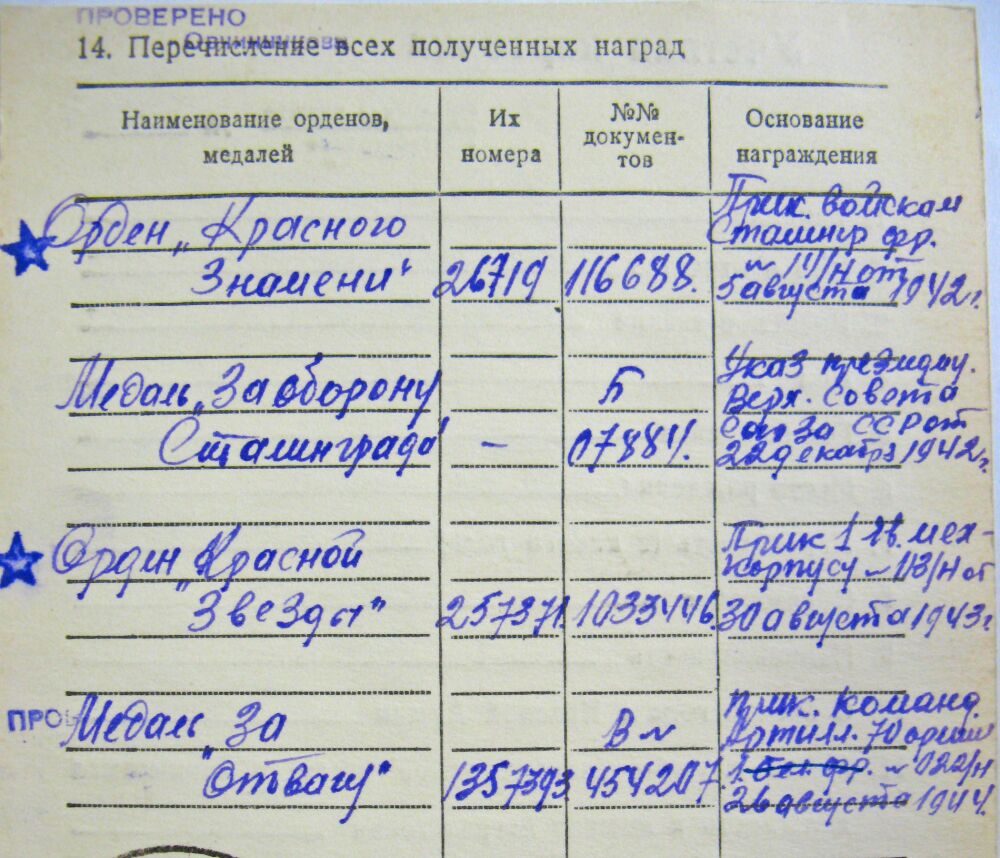 ПРОВЕРЕНО
14. Перечисление всех полученных наград
Наименование орденов, медалей
Их номера
№№ документов
Основание награждения
Орден „Красного
Знамени"
26719
116688.
Прик. войскам
Сталингр фр.
от
5 августа 1942 г.
Медаль „За оборону
Сталинграда"
-
Б
07884.
Указ президиу.
Верх. Совета
Союза ССР от
22 декабря 1942 г.
Орден „Красной
Звезды"
257371.
1033446.
Прик 1 гв. мех-
корпусу № 113/н от
30 августа 1943 г.
ПРОВ
Медаль За
„Отвагу"
1357393
В №
454207.
Прик. Команд.
Артилл. 70 армии
1. Бел. фр. № 022/н
26 августа 1944.